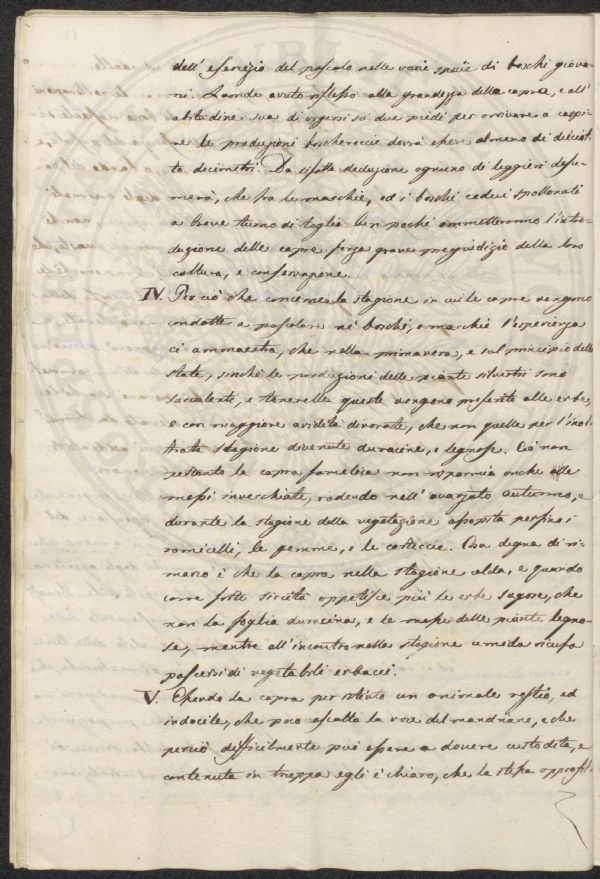 dell'esercizio del pascolo nelle varie specie di boschi giova-
ni. Laonde avuto riflesso alla grandezza della capra, e all'
abitudine sua di ergersi su due piedi per arrivare a carpi-
re le produzioni boschereccie dovrà essere almeno di dieciot-
to decimetri. Da sifatta deduzione ognuno di leggieri desu-
merà, che fra le macchie, ed i boschi cedui spollonati
a breve turno di taglio ben pochi ammetteranno l'intro-
duzione delle capre senza grave pregiudizio della loro
coltura, e conservazione.
IV. Per ciò che concerne la stagione in cui le capre vengono
condotte a pascolare ne' boschi, e macchie l'esperienza
ci ammaestra, che nella primavera, e sul principio della
state, sinchè le produzioni delle piante silvestri sono
succulenti, e tenerelle queste vengono preferite alle erbe,
e con maggiore avidità divorate, che non quelle per l'inol-
trata stagione divenute duracine, e legnose. Ciò non
pertanto la capra famelica non risparmia anche alle
messi invecchiate, rodendo nell'avanzato autunno, e
durante la stagione della vegetazione assopita perfino i
ramicelli, le gemme, e le corteccie. Cosa degna di ri-
marco è che la capra nella stagione calda, e quando
corre forte siccità appetisce più le erbe sapore, che
non la foglia duracina, e le messi delle piante legno-
se, mentre all'incontro nella stagione umida ricusa
pascersi di vegetabili erbacei.
V. Essendo la capra per istinto un animale restio, ed
indocile, che poco ascolta la voce del mandriano, e che
perciò difficilmente può essere a dovere custodita, e
contenuta in truppa egli è chiaro, che la stessa approfit-